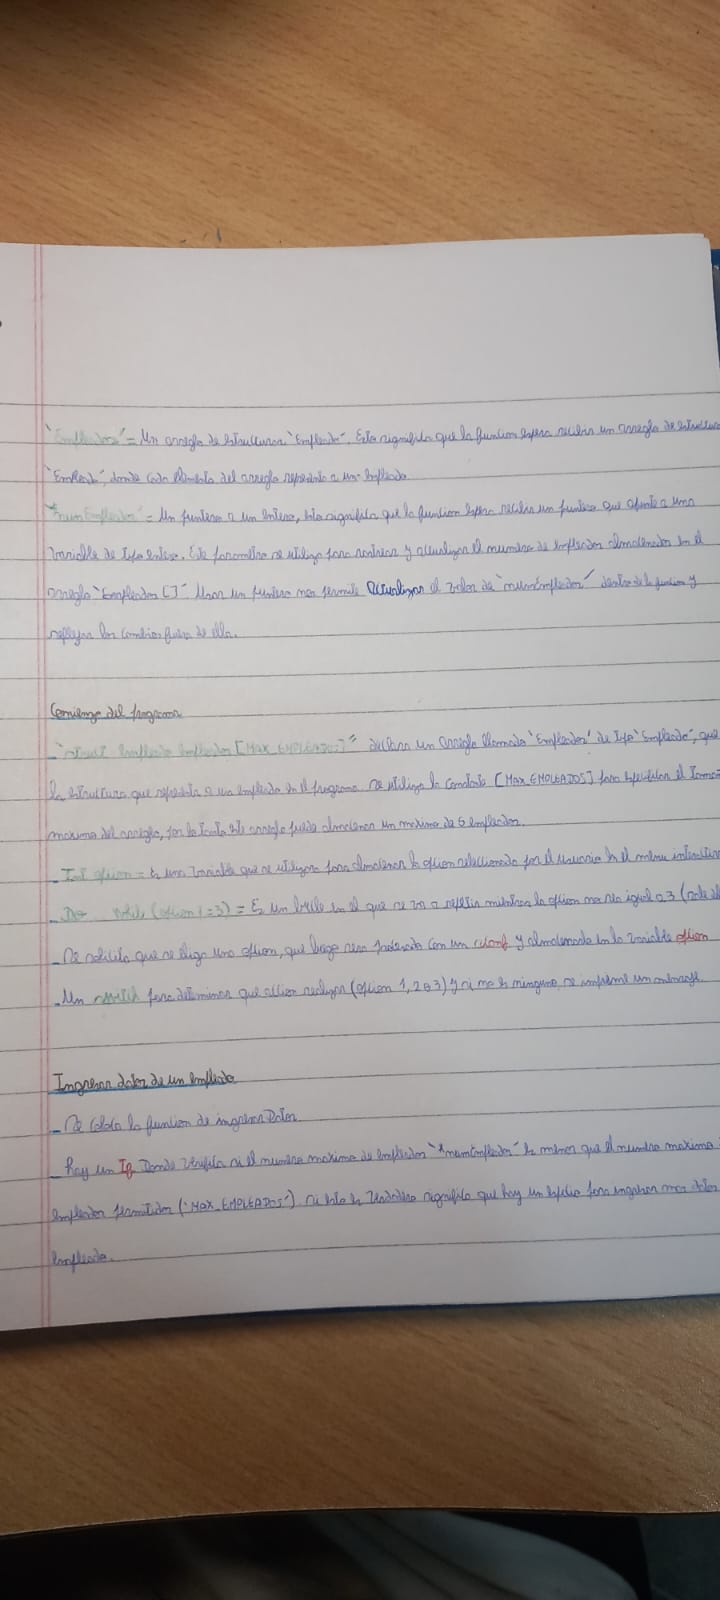 "Empleados" = Un arreglo de estructuras "Empleado". Esto significa que la funcion espera recibir un arreglo de estructura
"Empleado", donde cada elemento del arreglo representa a un empleado.
"*numEmpleados" = Un puntero a un entero, esto significa que la funcion espera recibir un puntero que apunte a una
variable de tipo entero. Este parametro se utiliza para rastrear y actualizar el numero de empleados almacenados en el
arreglo "Empleados []" Usar un puntero nos permite actualizar el valor de "numEmpleados" dentro de la funcion y
reflejar los cambios fuera de ella.
Comienzo del programa
- "struct Empleado empleados [MAX_EMPLEADOS]" declara un arreglo llamado "Empleados" de tipo "Empleado", que
la estructura que representa a un empleado en el programa. Se utiliza la constante [MAX_EMPLEADOS] para especificar el
maximo del arreglo, por lo tanto este arreglo puede almacenar un maximo de 5 empleados.
- Int opcion = Es una variable que se utilizara para almacenar la opcion seleccionada por el usuario en el menu
- Do while (opcion != 3) = Es un bucle en el que se va a repetir mientras la opcion no sea igual a 3
- Se solicita que se eliga una opcion, que luego sera con un scanf y almacenado en la variable opcion
- Un switch para determinar que accion realizar (opcion 1, 2 o 3) y si no es ninguna, se imprime un mensaje.
Ingresar datos de un empleado
- Se la funcion de ingresarDatos.
- Hay un If Donde verifica si el numero maximo de empleados "*numEmpleados" es menor que el numero maximo
empleados permitidos ("MAX_EMPLEADOS") si esto es verdadero significa que hay un espacio para ingresar mas datos
empleado.